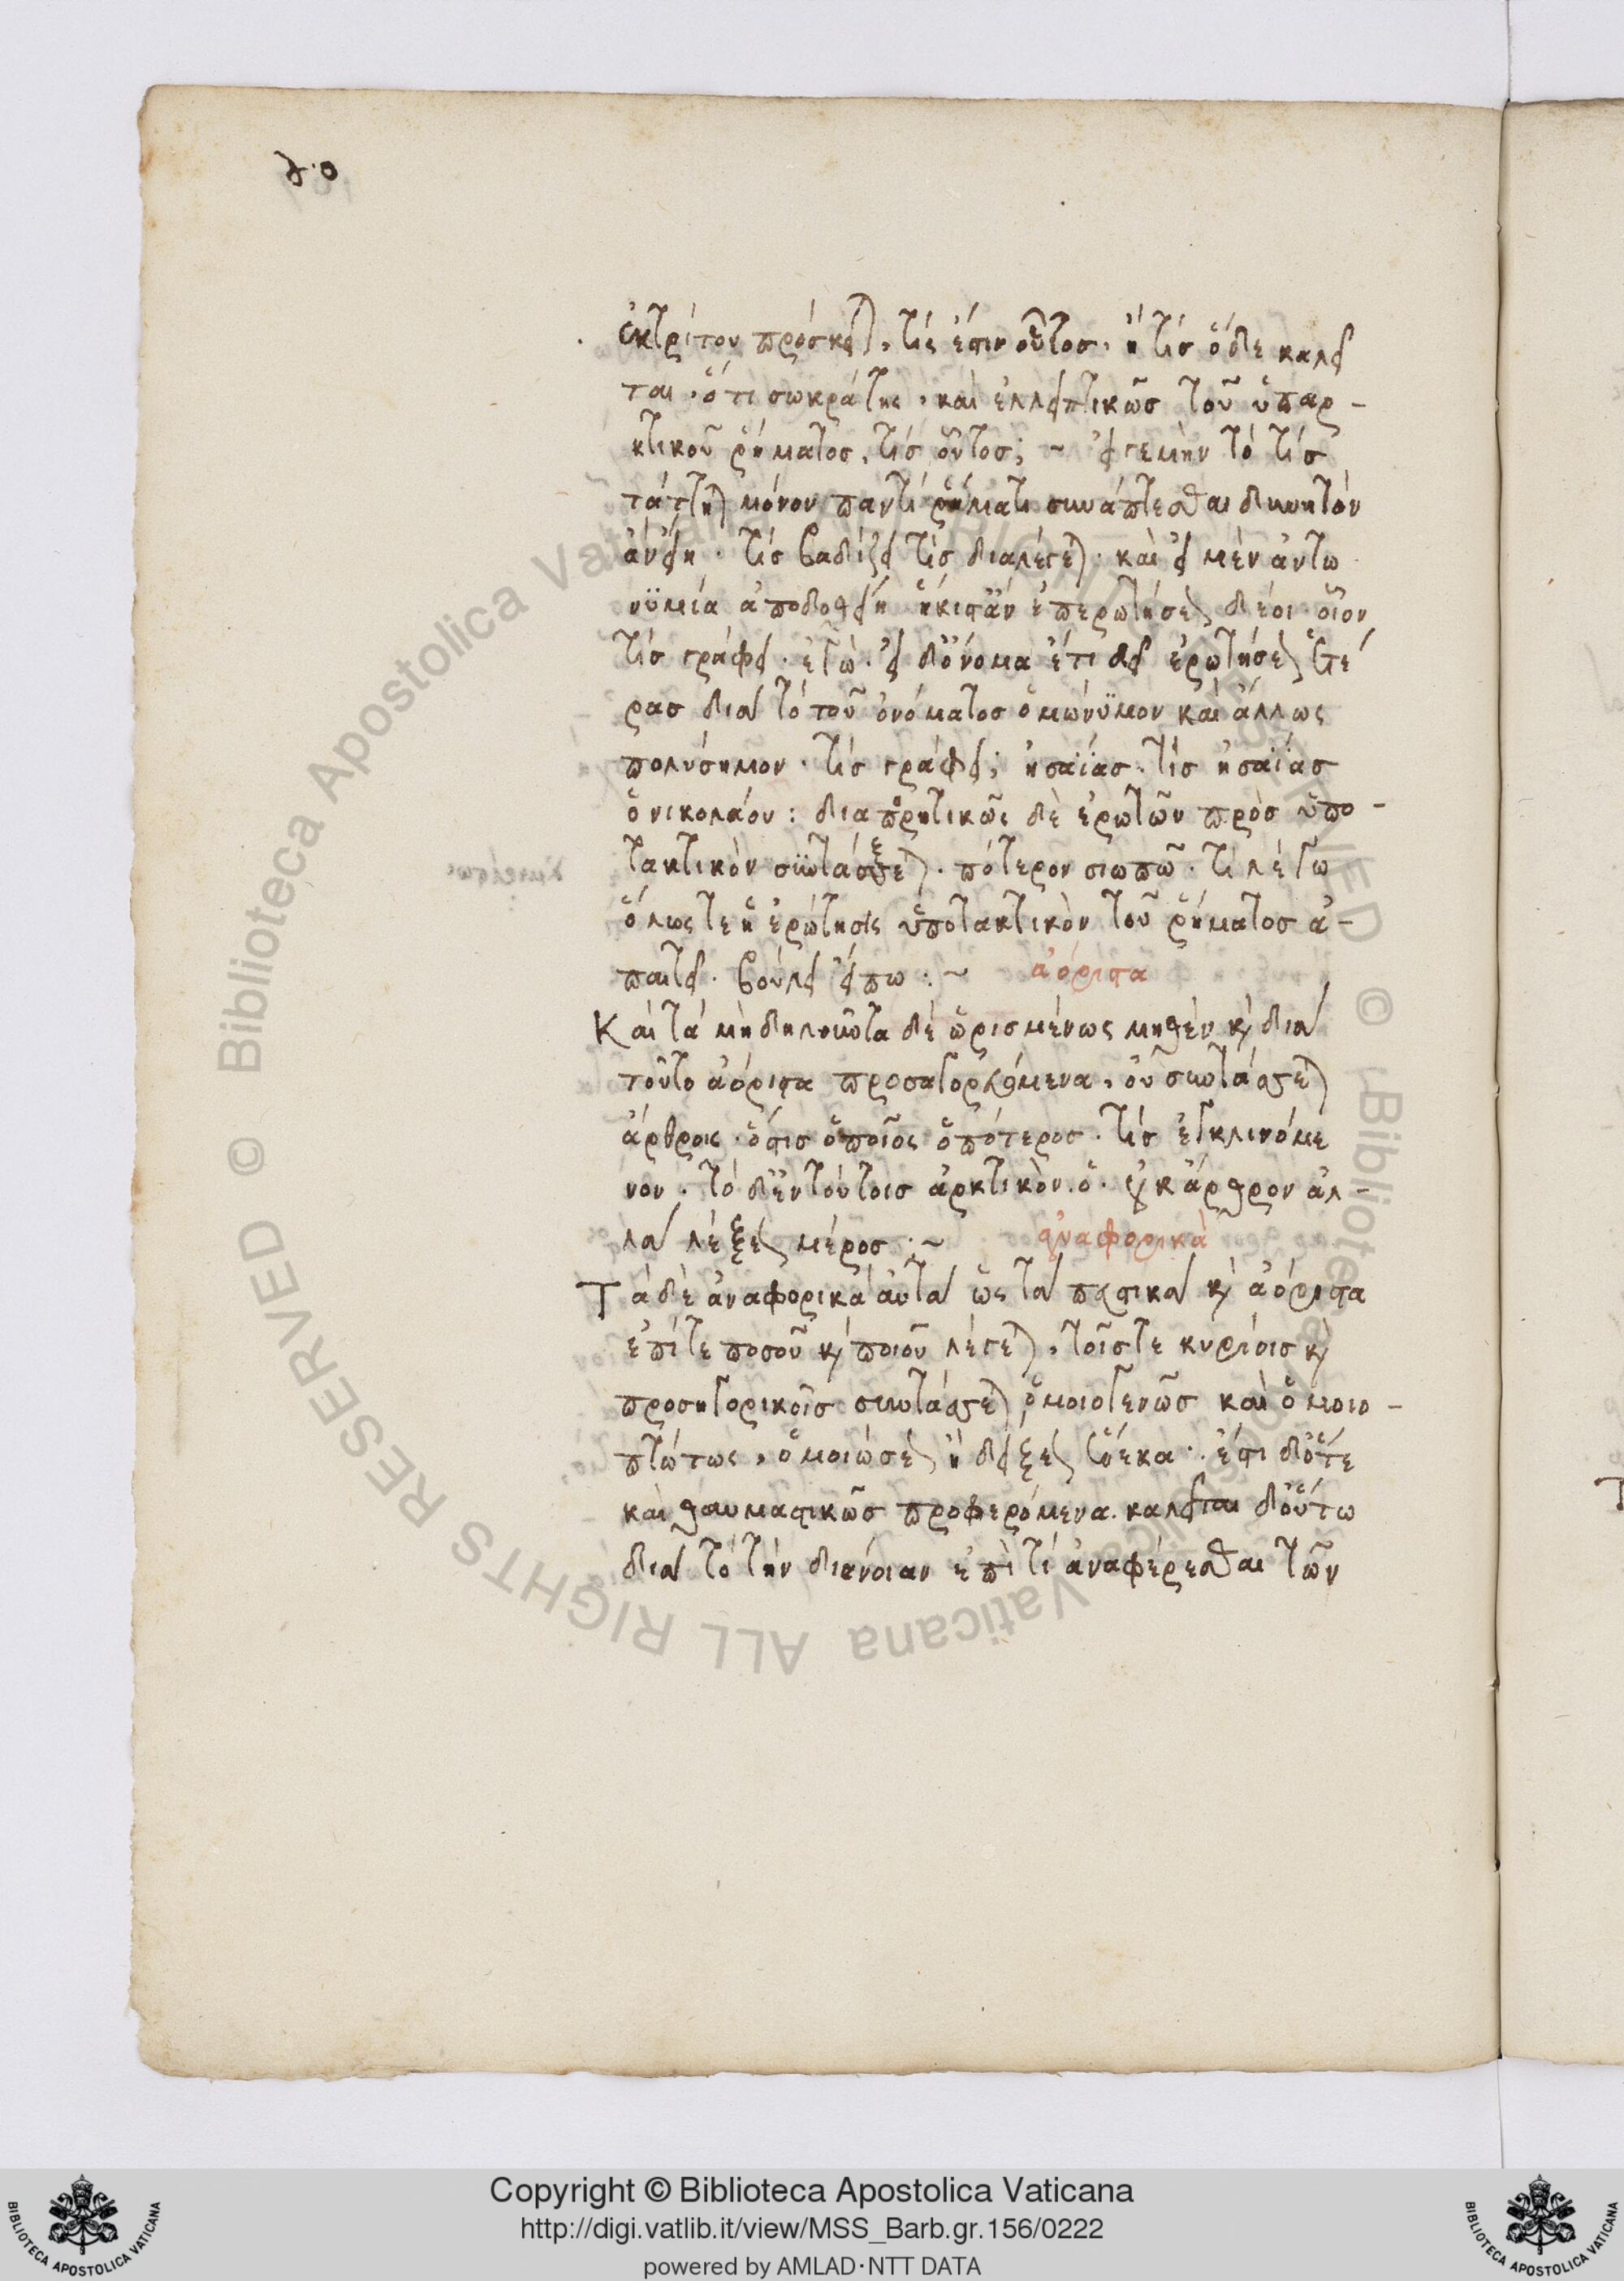 ἐκ τρίτου πρόσκειται, τίς ἐστιν οὗτος. ἢ τίς ὅδε καλεῖ
ται. ὅτι σωκράτης. καὶ ἐλλειπτικῶς τοῦ ὑπαρ-
κτικοῦ ῥήματος, τίς οὗτος; ~ εἴ γε μὴν τὸ τίς
τάττηται μόνον παντὶ ῥήματι συνάπτεσθαι δυνητὸν
ἂν εἴη. τίς βαδίζει τίς διαλέγεται. καὶ εἰ μὲν ἀντω
νυμία ἀποδοθείη ἥκιστ' ἂν ἐπερωτήσεως δέοι. οἷον
τίς γράφει. ἐγώ. εἰ δ' ὄνομα ἔτι δεῖ ἐρωτήσεως ἑτέ
ρας διὰ τὸ τοῦ ὀνόματος ὁμώνυμον καὶ ἄλλως
πολύσημον. τίς γράφει; ἠσαΐας. τίς ἠσαΐας
ὁ νικολάου: διαπορητικῶς δὲ ἐρωτῶν πρὸς ὑπο-
τακτικὸν συντάξεται. πότερον σιωπῶ. τί λέγω
ὅλως τε ἡ ἐρώτησις ὑποτακτικὸν τοῦ ῥήματος ἀ-
παιτεῖ. βούλει εἴπω: ~ ἀόριστα
Καὶ τὰ μὴ δηλοῦντα δὲ ὡρισμένως μηθὲν καὶ διὰ
τοῦτο ἀόριστα προσαγορευόμενα, οὐ συντάσσεται
ἄρθροις. ὅστις ὁποῖος ὁπότερος. τίς ἐγκλινόμε
νον. τὸ δ' ἐν τούτοις ἀρκτικὸν. ὁ. οὐκ ἄρθρον ἀλ-
λὰ λέξεως μέρος: ~ ἀναφορικὰ
Τὰ δὲ ἀναφορικὰ αὐτὰ ὡς τὰ πευστικὰ καὶ ἀόριστα
ἐπί τε ποσοῦ καὶ ποιοῦ λέγεται. τοῖς τε κυρίοις καὶ
προσηγορικοῖς συντάσσεται, ὁμοιογενῶς καὶ ὁμοιο-
πτώτως, ὁμοιώσεως ἢ δείξεως ἕνεκα. ἔστι δ' ὅτε
καὶ θαυμαστικῶς προφερόμενα. καλεῖται δ' οὕτω
διὰ τὸ τὴν διάνοιαν ἐπί τι ἀναφέρεσθαι τῶν
Copyright © Biblioteca Apostolica Vaticana
http://digi.vatlib.it/view/MSS_Barb.gr.156/0222
powered by AMLAD·NTT DATA